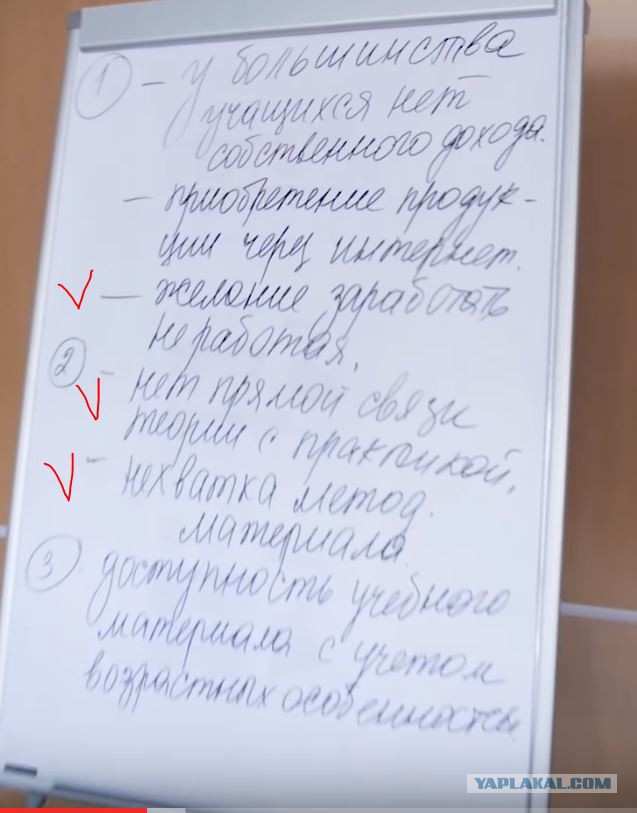 1 – у большинства
учащихся нет
собственного дохода.
– приобретение продук-
ции через интернет.
– желание заработать
не работая.
2 – нет прямой связи
теории с практикой.
– нехватка метод.
материала.
3 доступность учебного
материала с учетом
возрастных особенностей
YAPLAKAL.COM